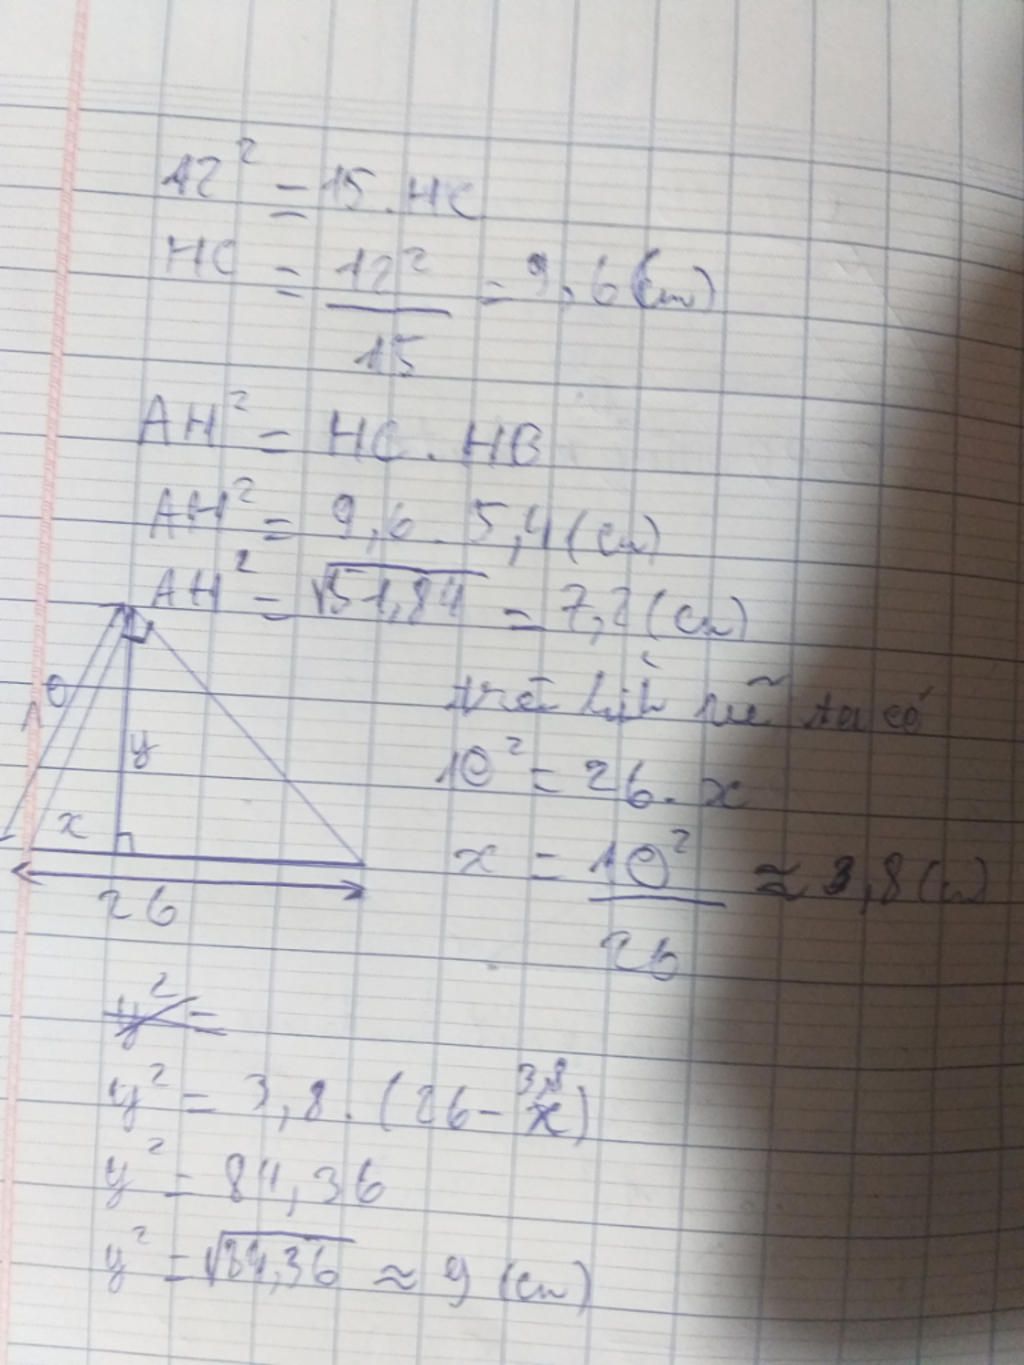 12² = 15 . HC
HC = 12²/15 = 9,6 (cm)
AH² = HC . HB
AH² = 9,6 . 5,4 (cm)
AH² = √51,84 = 7,2 (cm)
10
y
x
26
ta có
10² = 26 . x
x = 10²/26 ≈ 3,8 (cm)
y² =
3,8
y² = 3,8 . (26 - x)
y² = 84,36
y² = √84,36 ≈ 9 (cm)